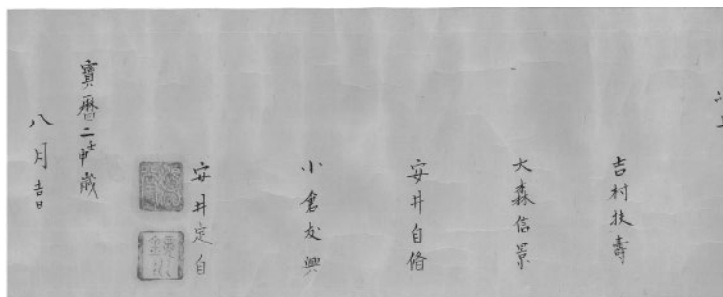 吉村扶壽
大森信景
安井自脩
小倉友興
安井定自
寶暦二壬申歳
八月吉日